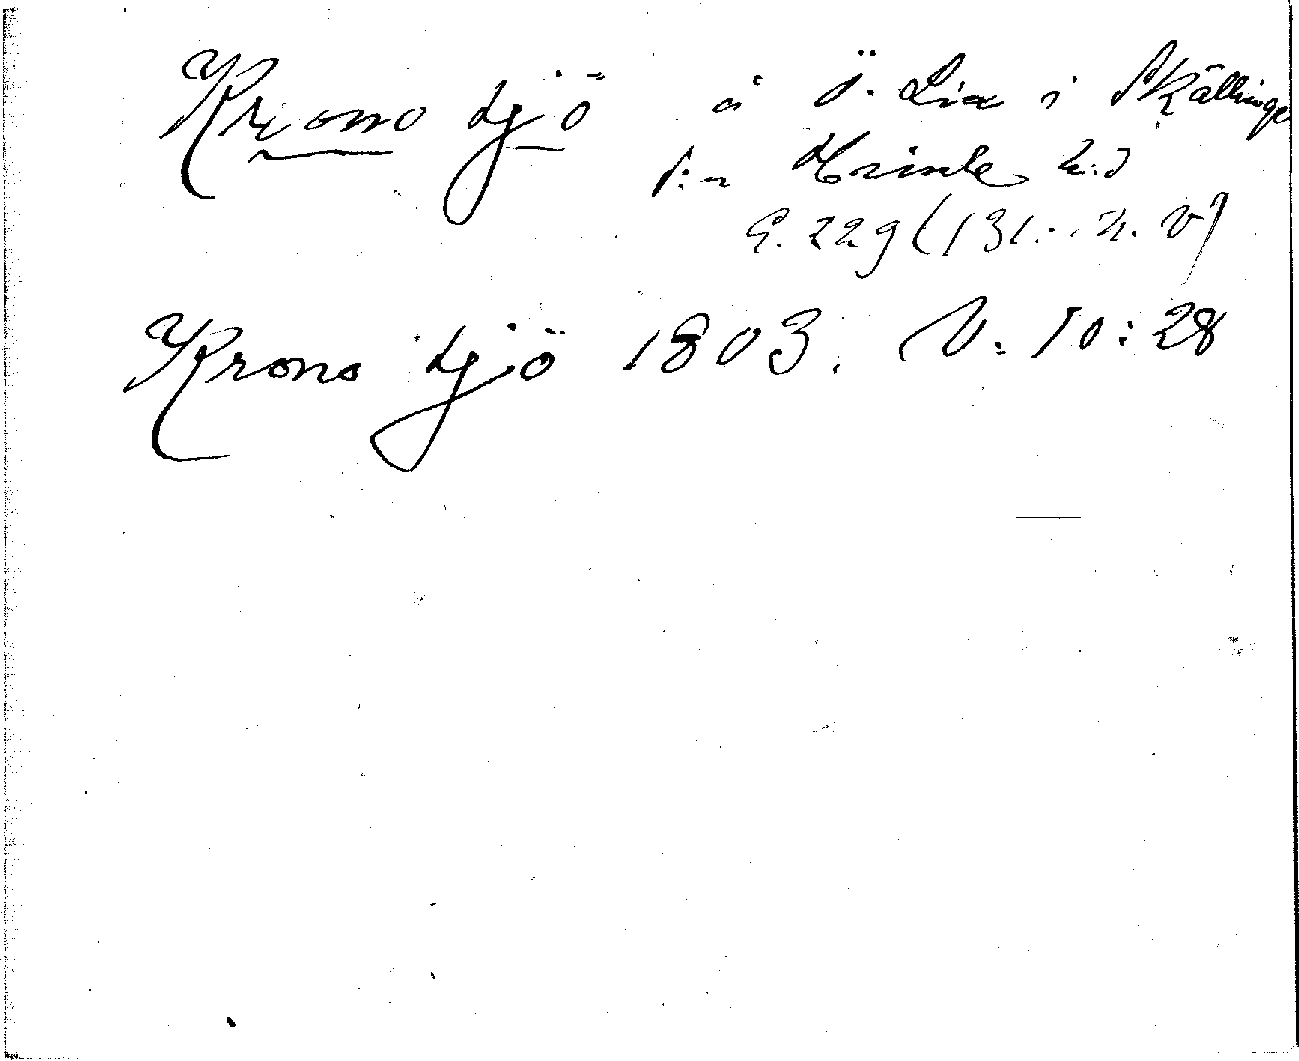 Krono sjö å Ö. Lia i Skällinge
s:n Himle h:d
G. 229 (131. n. v)
Krono sjö 1803. V. 10:28